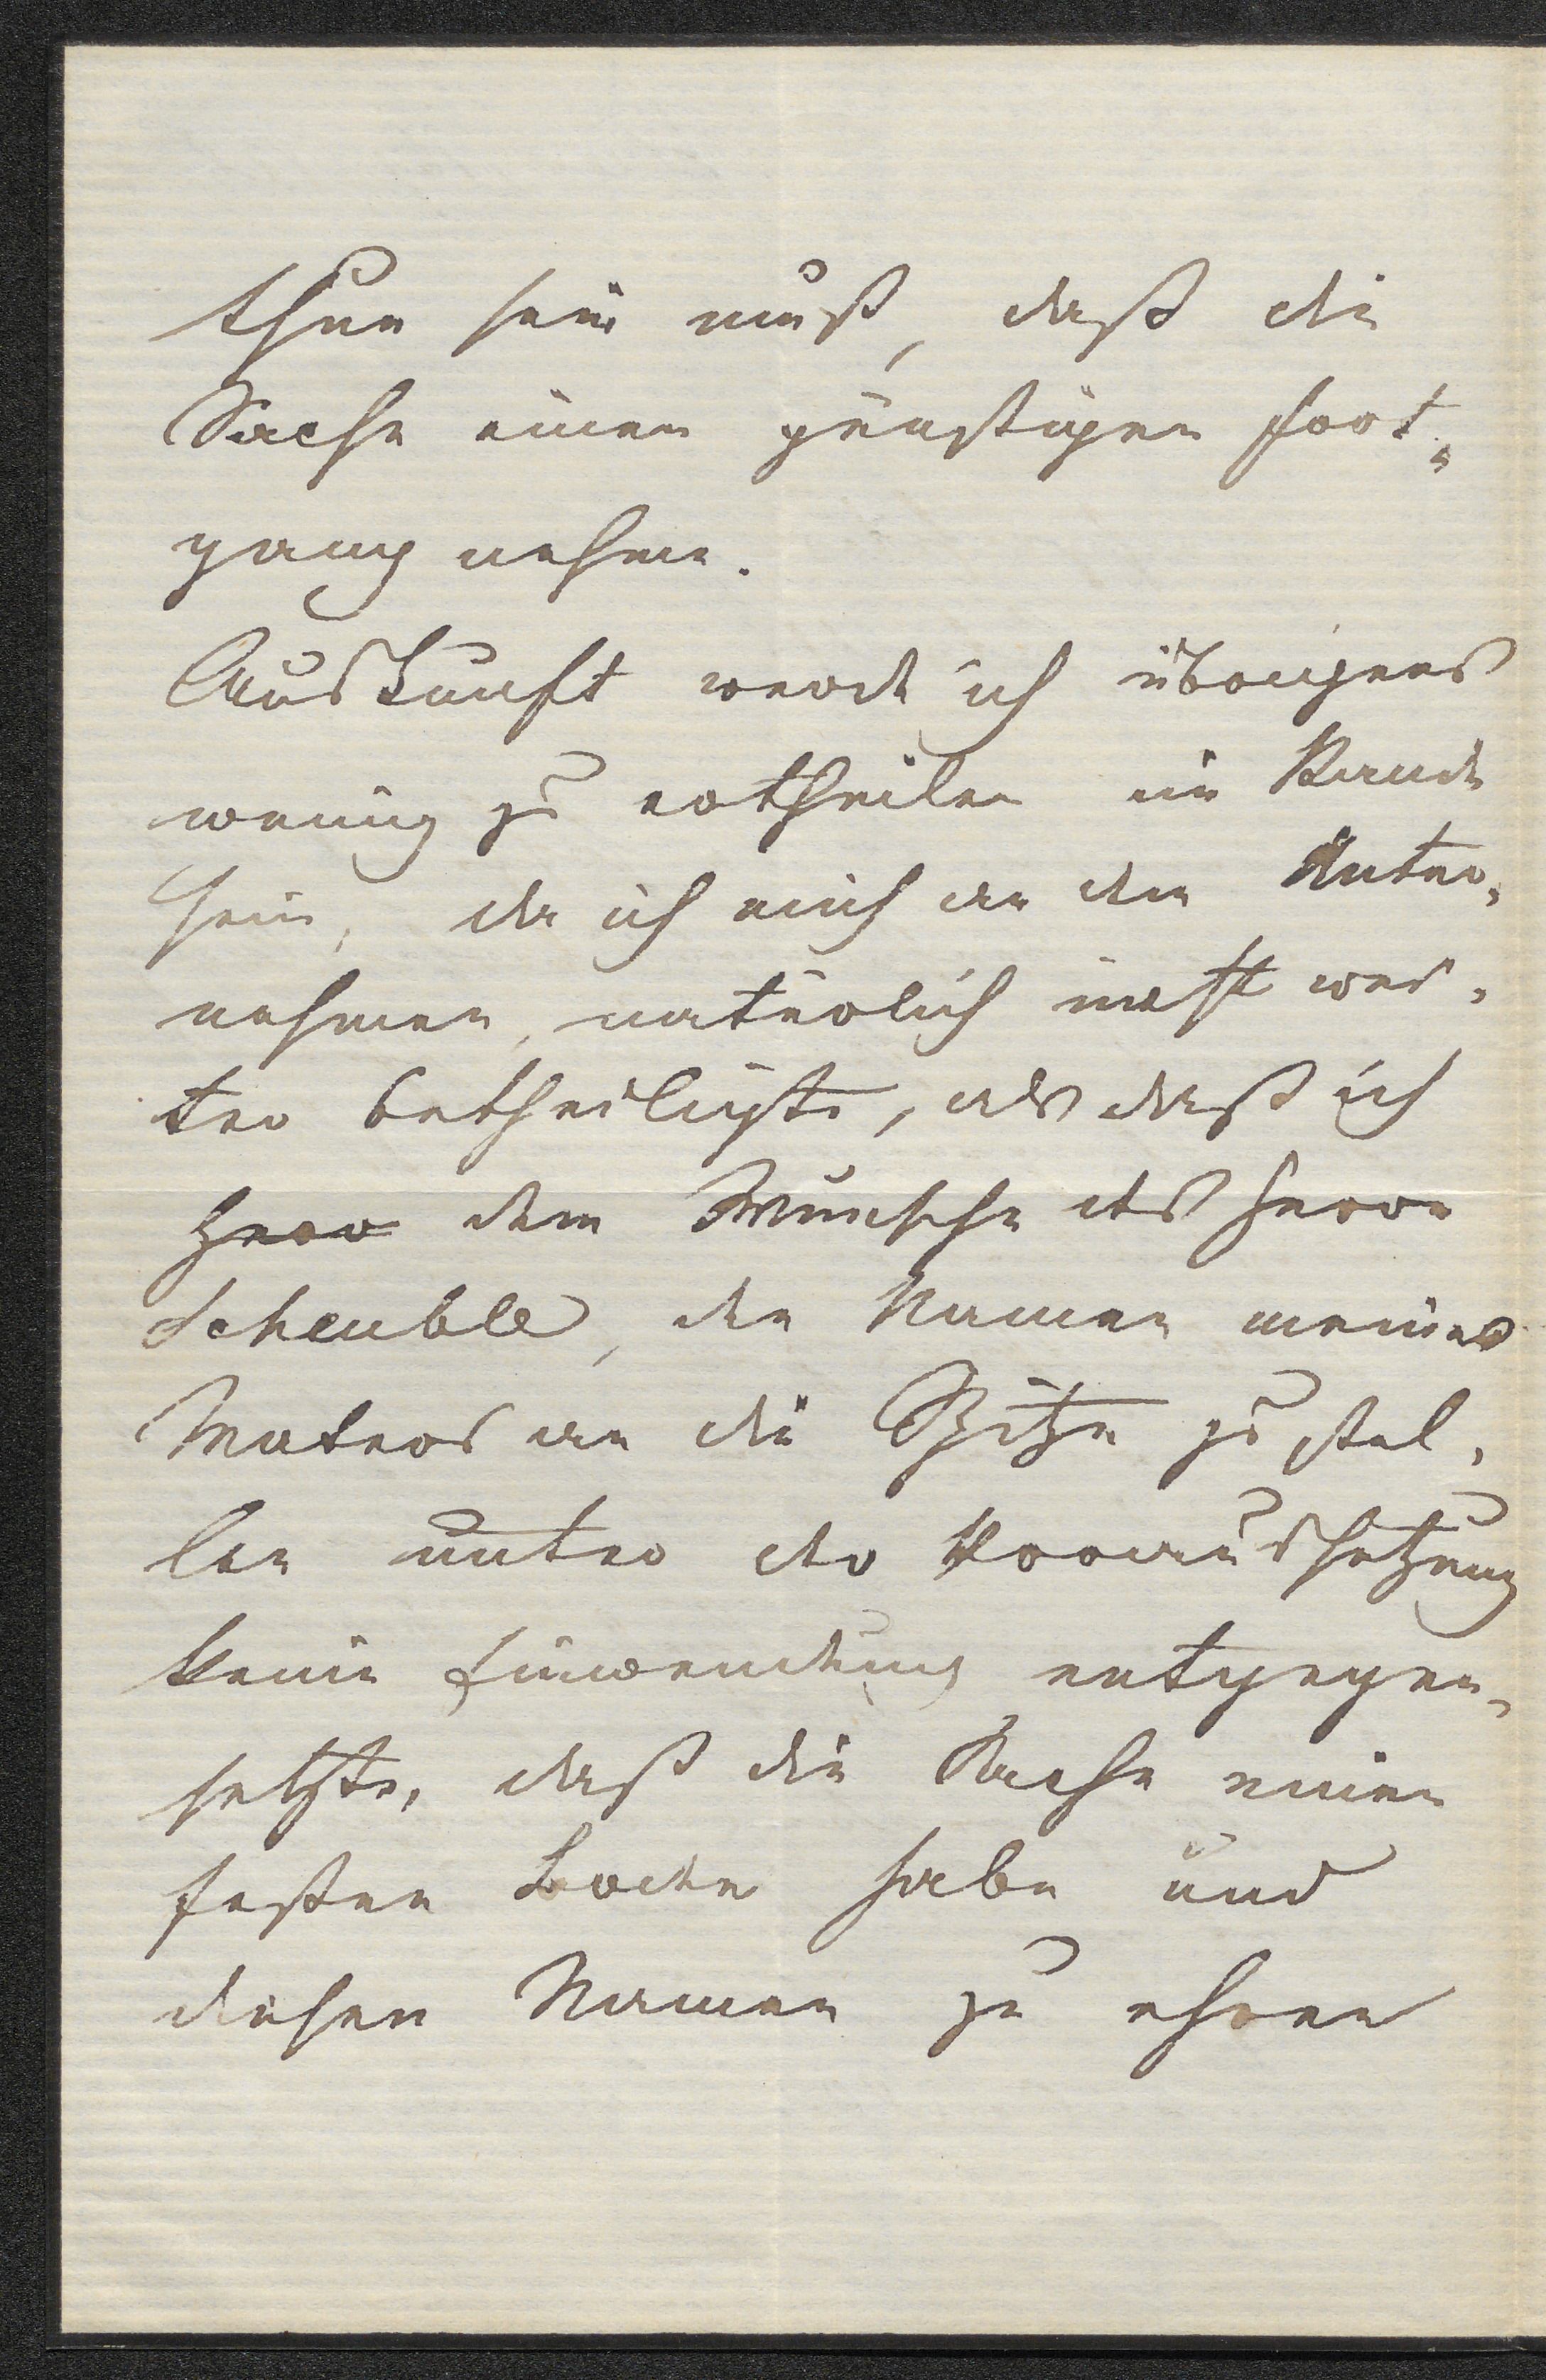 thun sein muß, daß die
Sache einen günstigen Fort=
gang nehme.
Auskunft werde ich übrigens
wenig zu ertheilen im Stande
sein, da ich mich an dem Unter=
nehmen, natürlich nicht wei=
ter betheiligte, als daß ich
Herr dem Wunsche des Herrn
Scheuble, den Namen meines
Vaters an die Spitze zu stel=
len unter der Voraussetzung
keine Einwendung entgegen=
setzte, daß die Sache einen
festen Boden habe und
diesen Namen zu ehren